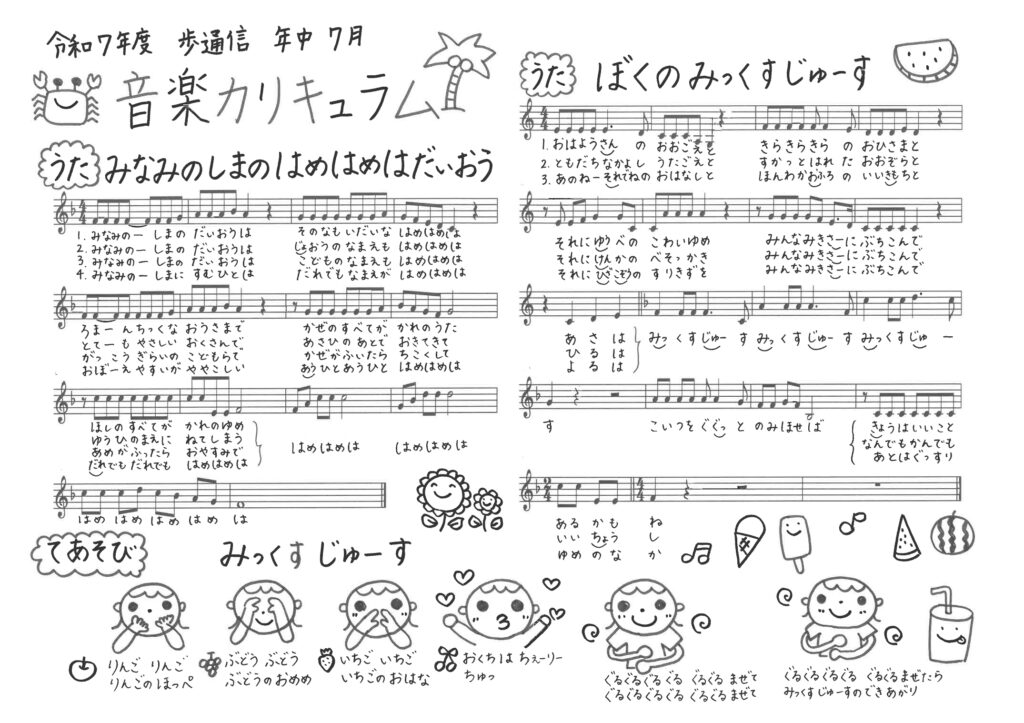 令和7年度 歩通信 年中 7月
音楽カリキュラム
うた みなみのしまのはめはめはだいおう
1. みなみのー しまの だいおうは そのなもいだいな はめはめは
2. みなみのー しまの だいおうは じょおうのなまえも はめはめは
3. みなみのー しまの だいおうは こどものなまえも はめはめは
4. みなみのー しまに すむひとは だれでもなまえが はめはめは
ろまーんちっくな おうさまで かぜのすべてが かれのうた
とてーもやさしい おくさんで あさひのあとで おきてきて
がっこうぎらいの こどもらで かぜがふいたら ちこくして
おぼーえやすいが ややこしい あうひとあうひと はめはめは
ほしのすべてが かれのゆめ
ゆうひのまえに ねてしまう
あめがふったら おやすみで
だれでもだれでも はめはめは
はめはめは はめはめは
はめ はめ はめ はめ は
うた ぼくのみっくすじゅーす
1. おはようさん の おおごえと きらきらきら の おひさまと
2. ともだちなかよし うたごえと すかっとはれ た おおぞらと
3. あのねーそれでねの おはなしと ほんわかおふろ の いいきもちと
それにゆうべの こわいゆめ みんなみきさーに ぶちこんで
それにけんかの べそっかき みんなみきさーに ぶちこんで
それにひざこぞうの すりきずを みんなみきさーに ぶちこんで
あさは
ひるは
よるは
みっくすじゅーす みっくすじゅーす みっくすじゅー
す こいつをぐぐっと のみほせば
きょうはいいこと
なんでもかんでも
あとはぐっすり
あるかも ね
いいちょう し
ゆめのな か
てあそび みっくすじゅーす
りんご りんご
りんごのほっぺ
ぶどう ぶどう
ぶどうのおめめ
いちご いちご
いちごのおはな
おくちは ちぇーりー
ちゅっ
ぐるぐるぐるぐる ぐるぐるまぜて
ぐるぐるぐるぐる ぐるぐるまぜて
ぐるぐるぐるぐる ぐるぐるまぜたら
みっくすじゅーすのできあがり